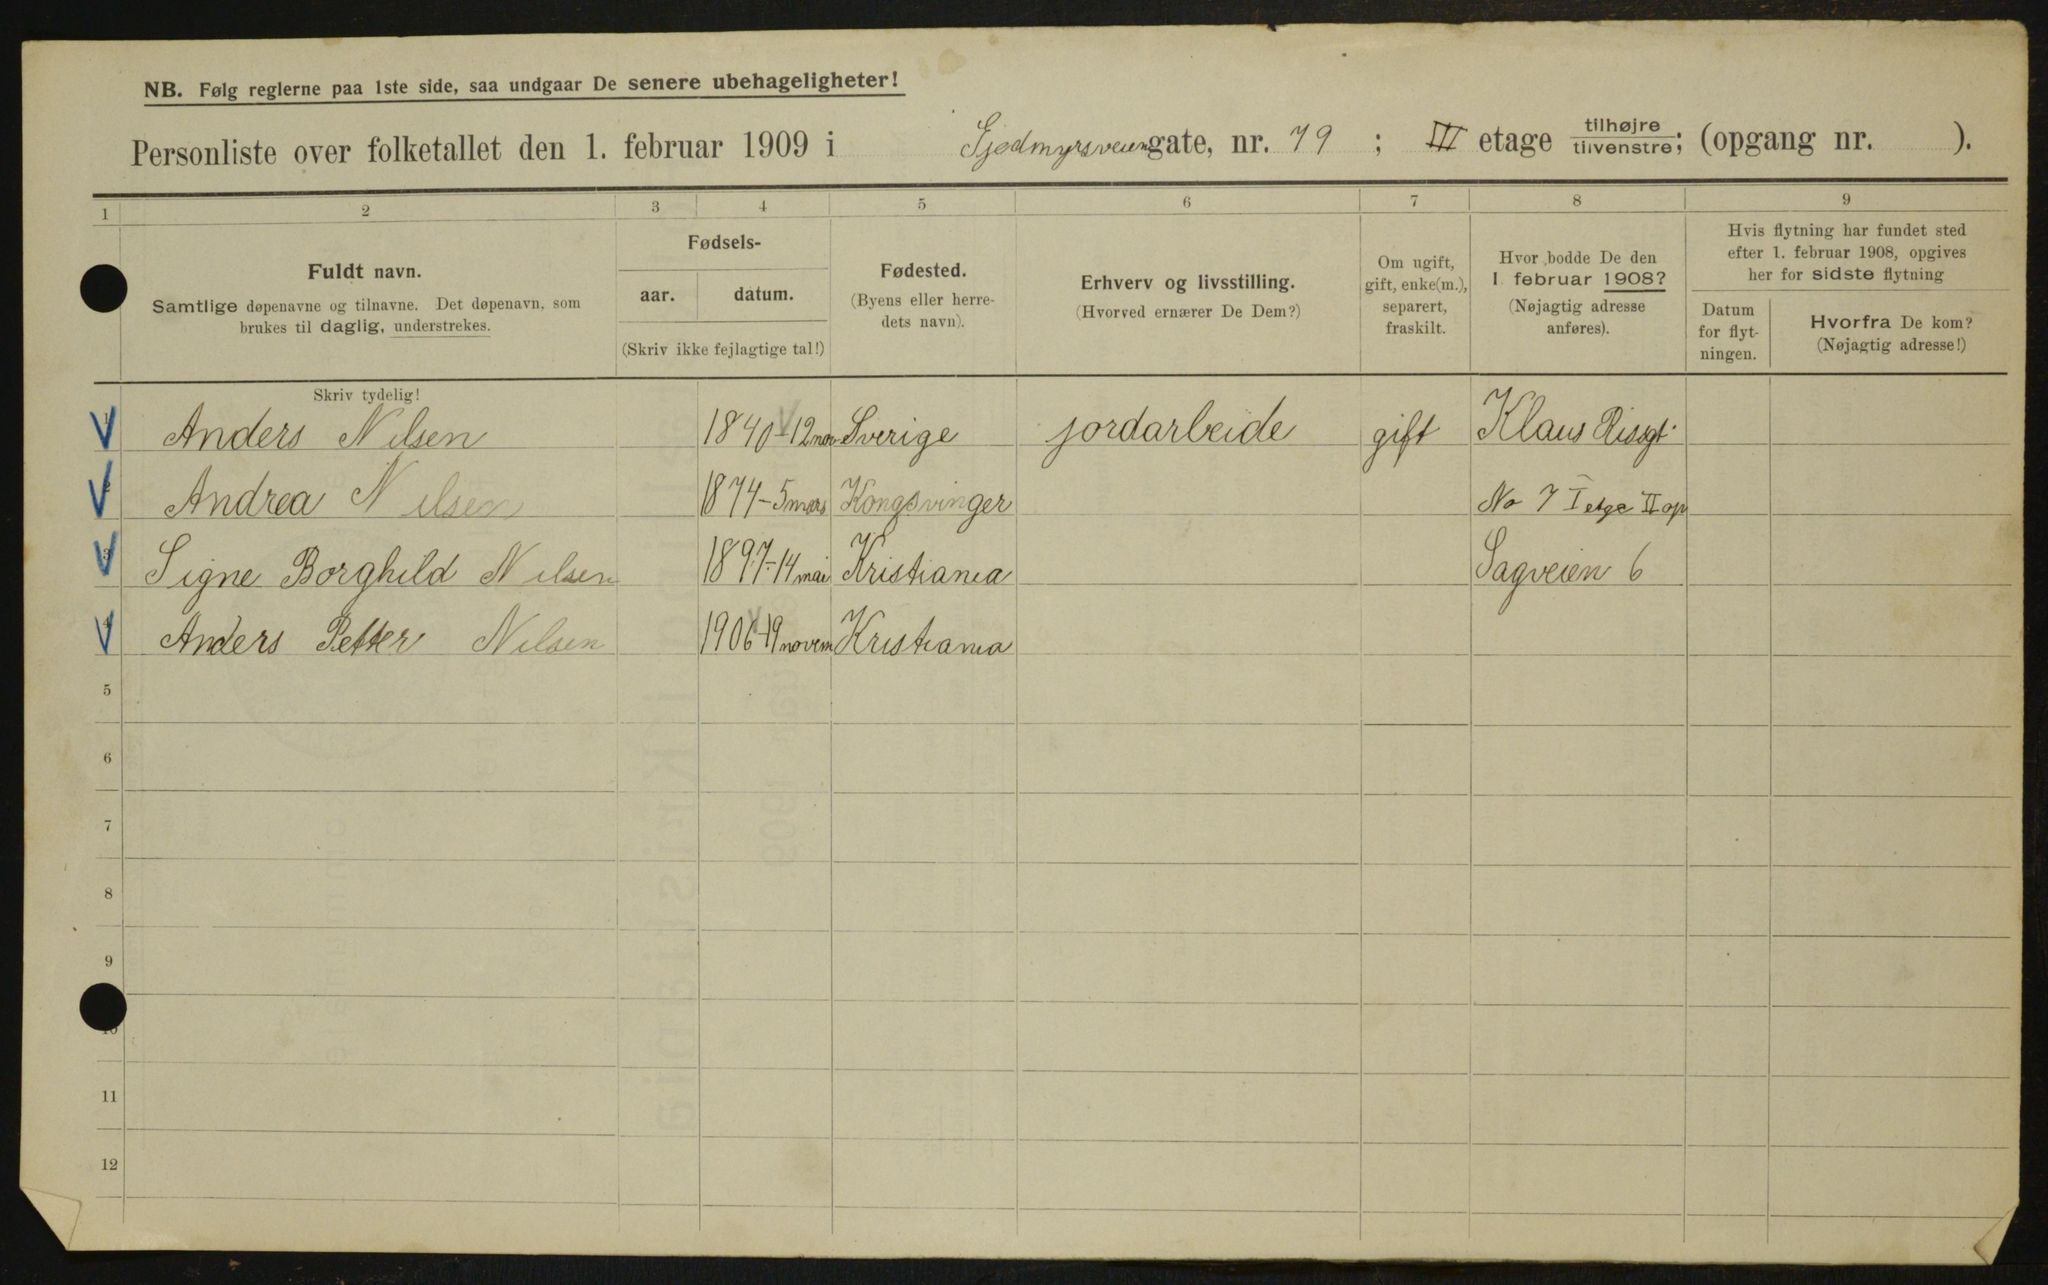 NB. Følg reglerne paa 1ste side, saa undgaar De senere ubehageligheter!
Personliste over folketallet den 1. februar 1909 i gate, nr. 79 ; III etage tilhøjre tilvenstre; (opgang nr. ).
1 2 3 4 5 6 7 8 9
Fuldt navn.
Samtlige døpenavne og tilnavne. Det døpenavn, som
brukes til daglig, understrekes.
Skriv tydelig!
Fødsels-
aar. datum.
(Skriv ikke fejlagtige tal!)
Fødested.
(Byens eller herre-
dets navn).
Erhverv og livsstilling.
(Hvorved ernærer De Dem?)
Om ugift,
gift, enke(m.),
separert,
fraskilt.
Hvor bodde De den
1 februar 1908?
(Nøjagtig adresse
anføres).
Hvis flytning har fundet sted
efter 1. februar 1908, opgives
her for sidste flytning
Datum
for flyt-
ningen.
Hvorfra De kom?
(Nøjagtig adresse!)
1 Anders Nilsen 1840-12 nov Sverige jordarbeide gift Klaus Risgt.
2 Andrea Nilsen 1874-5 mars Kongsvinger No 7 I etge II op
3 Signe Borghild Nilsen 1897-14 mai Kristiania Sagveien 6
4 Anders Petter Nilsen 1906-19 novem Kristiania
5
6
7
8
9
10
11
12